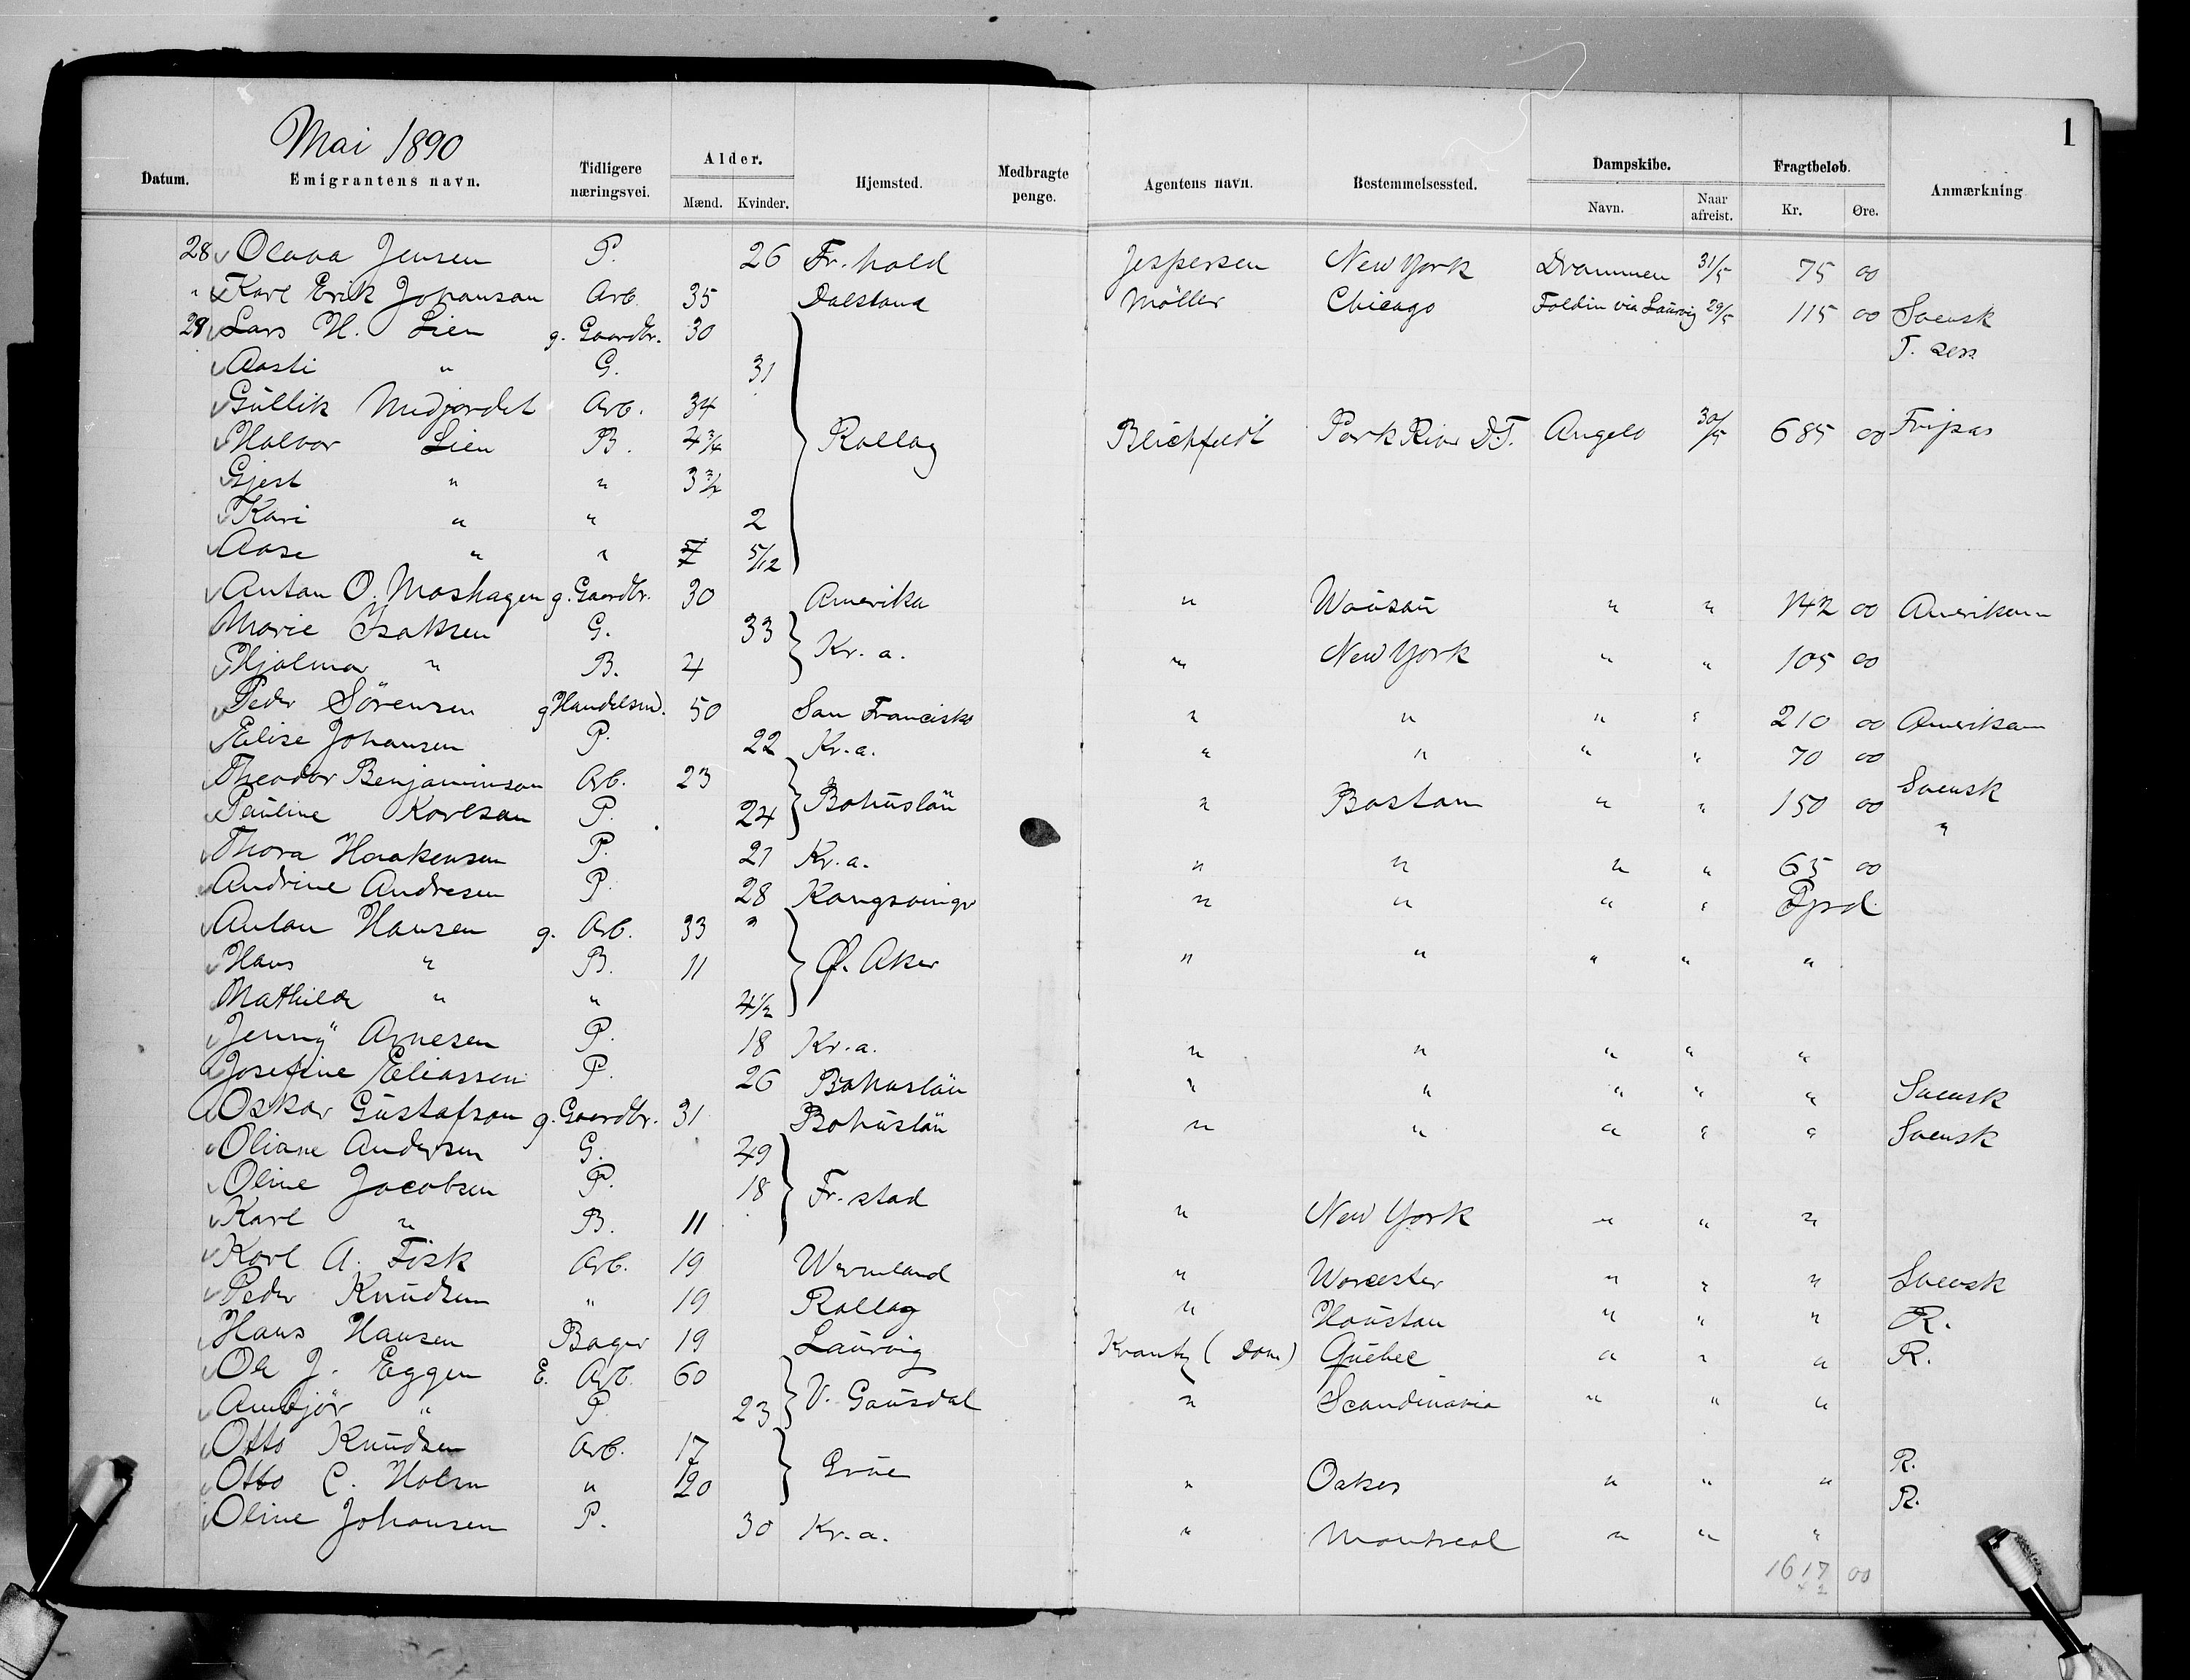 1
Mai 1890
Datum. Emigrantens navn. Tidligere næringsvei. Alder. Mænd. Kvinder. Hjemsted. Medbragte penge. Agentens navn. Bestemmelsessted. Dampskibe. Navn. Naar afreist. Fragtbeløb. Kr. Øre. Anmærkning
28 Olava Jensen P. 26 Fr.hald Jespersen New York Drammen 31/5 75 00
" Karl Erik Johanson Arb. 35 Dalsland Møller Chicago Foldin via Laurvig 29/5 115 00 Svensk
29 Lars H. Lien g. Gaardbr. 30
Aasti " G. 31
Gullik Medjordet Arb. 34
Halvor Lien B. 4 3/4 Rollag Blichfeldt Park River D.T. Angelo 30/5 685 00 Fripas
Gjest " " 3 3/4
Kari " " 2
Aase " " 5/12
Anton O. Moshagen g. Gaardbr. 30 Amerika " Wausau " " 142 00 Amerikan
Marie Isaksen G. 33 Kr.a.
Hjalmar " B. 4 " New York " " 105 00
Peder Sörensen g Handelsm. 50 San Francisko " " " " 210 00 Amerikan
Elise Johansen P. 22 Kr.a. " " " " 70 00
Theodor Benjaminson Arb. 23 Bohuslän " Boston " " 150 00 Svensk
Pauline Karlson P. 24 "
Thora Haakensen P. 21 Kr.a. " " " " 65 00
Andrine Andresen P. 28 Kongsvinger " " " "
Anton Hansen g. Arb. 33 "
Hans " B. 11 Ø. Aker " " " " "
Mathilde " " 4 1/2
Jenny Arnesen P. 18 Kr.a. " " " " "
Josefine Eliassen P. 26 Bohuslän " " " " " Svensk
Oskar Gustafson g. Gaardbr. 31 Bohuslän " " " " " Svensk
Oliane Andersen G. 49
Oline Jacobsen P. 18 Fr.stad
Karl " B. 11 " New York " " "
Karl A. Fisk Arb. 19 Wermland " Worcester " " " Svensk
Peder Knudsen " 19 Rollag " Houston " " " R.
Hans Hansen Bager 19 Laurvig Krantz (Dom) Quebec " " " R.
Ole J. Eggen E. Arb. 60 V. Gausdal
Ambjör " P. 23 " Scandinavia " " "
Otto Knudsen Arb. 17 Grue R.
Otto C. Holm " 20 " Oakes " " " R.
Oline Johansen P. 30 Kr.a. " Montreal " " "
1617 00